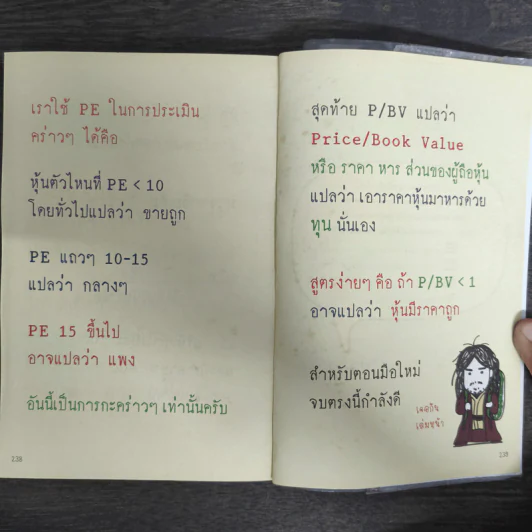 เราใช้ PE ในการประเมิน
คร่าวๆ ได้คือ
หุ้นตัวไหนที่ PE < 10
โดยทั่วไปแปลว่า ขายถูก
PE แถวๆ 10-15
แปลว่า กลางๆ
PE 15 ขึ้นไป
อาจแปลว่า แพง
อันนี้เป็นการกะคร่าวๆ เท่านั้นครับ
238
สุดท้าย P/BV แปลว่า
Price/Book Value
หรือ ราคา หาร ส่วนของผู้ถือหุ้น
แปลว่า เอาราคาหุ้นมาหารด้วย
ทุน นั่นเอง
สูตรง่ายๆ คือ ถ้า P/BV < 1
อาจแปลว่า หุ้นมีราคาถูก
สำหรับตอนมือใหม่
จบตรงนี้กำลังดี
เจอกัน
เล่มหน้า